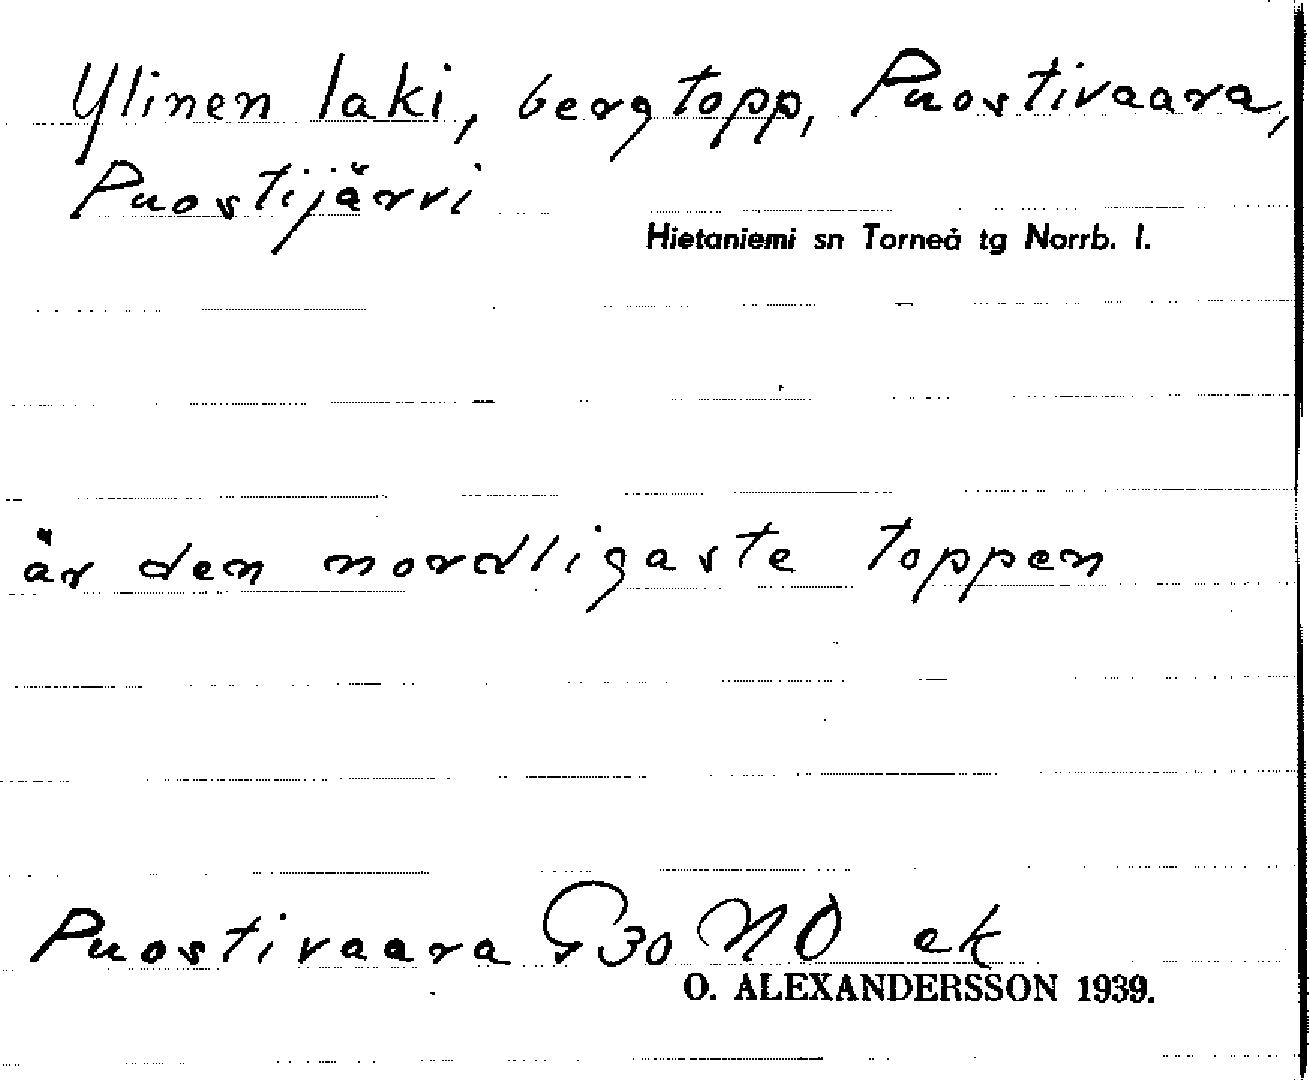 Ylinen laki, bergtopp, Puostivaara,
Puostijärvi
Hietaniemi sn Torneå tg Norrb. l.
är den nordligaste toppen
Puostivaara G30 NO ek
O. ALEXANDERSSON 1939.